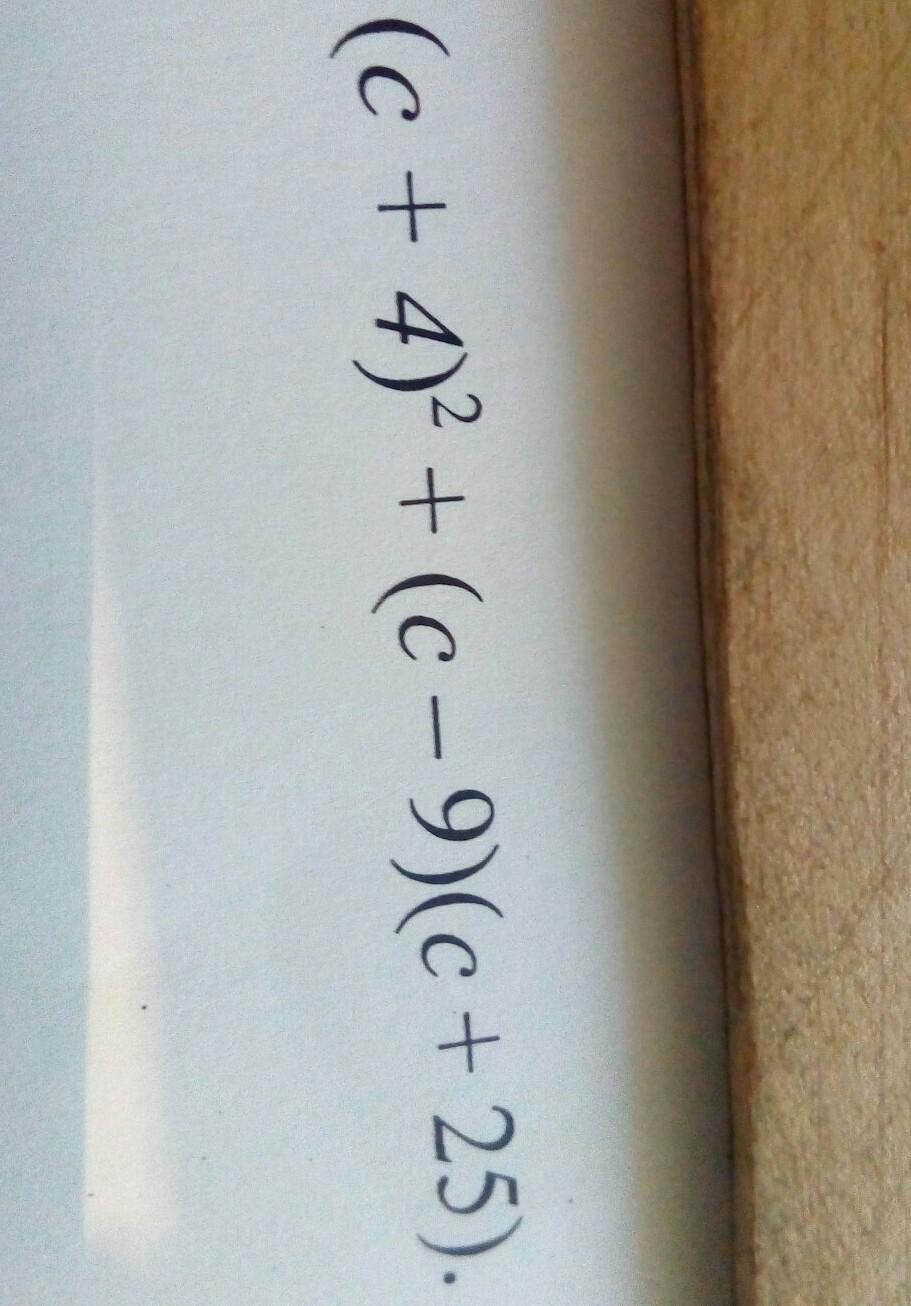 (c + 4)² + (c − 9)(c + 25).